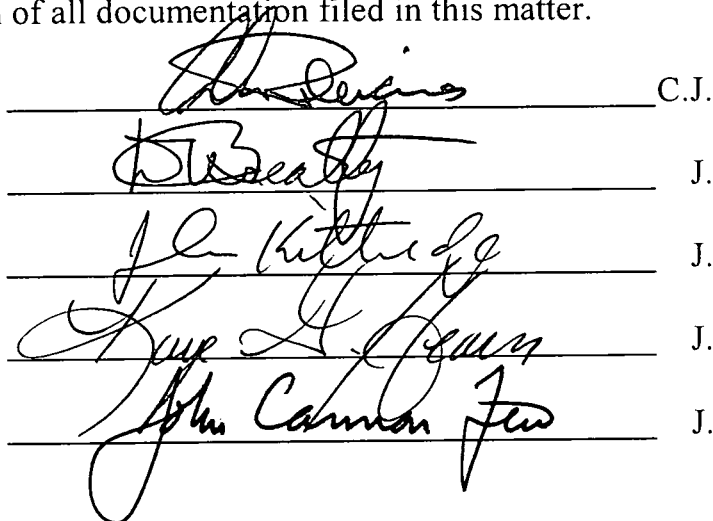 of all documentation filed in this matter.
C.J.
J.
John Kittredge J.
Kaye G. Hearn J.
John Cannon Few J.